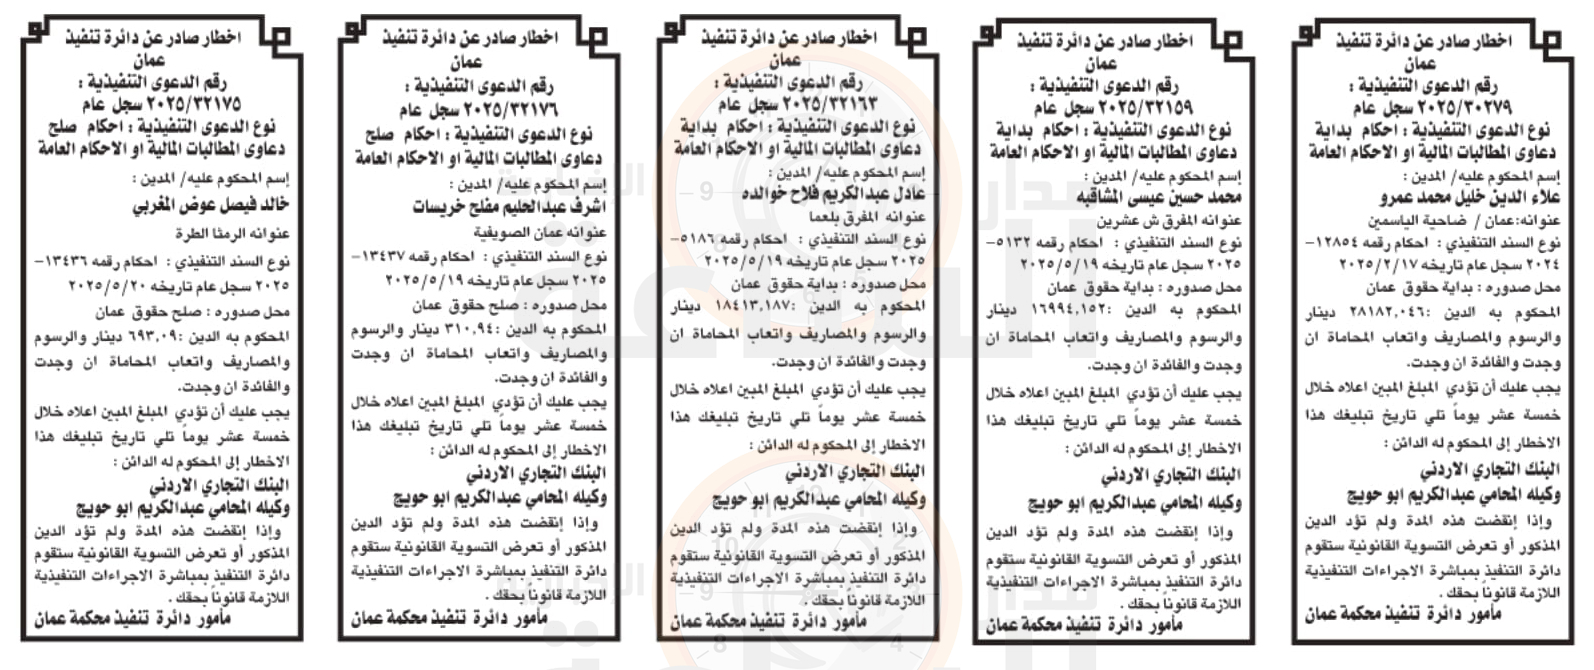 اخطار صادر عن دائرة تنفيذ
عمان
رقم الدعوى التنفيذية :
٢٠٢٥/٣٠٢٧٩ سجل عام
نوع الدعوى التنفيذية : احكام بداية
دعاوى المطالبات المالية او الاحكام العامة
إسم المحكوم عليه/ المدين :
علاء الدين خليل محمد عمرو
عنوانه:عمان / ضاحية الياسمين
نوع السند التنفيذي : احكام رقمه ١٢٨٥٤-
٢٠٢٤ سجل عام تاريخه ٢٠٢٥/٢/١٧
محل صدوره : بداية حقوق عمان
المحكوم به الدين :٢٨١٨٢,٠٤٦ دينار
والرسوم والمصاريف واتعاب المحاماة ان
وجدت والفائدة ان وجدت.
يجب عليك أن تؤدي المبلغ المبين اعلاه خلال
خمسة عشر يوماً تلي تاريخ تبليغك هذا
الاخطار إلى المحكوم له الدائن :
البنك التجاري الاردني
وكيله المحامي عبدالكريم ابو حويج
وإذا إنقضت هذه المدة ولم تؤد الدين
المذكور أو تعرض التسوية القانونية ستقوم
دائرة التنفيذ بمباشرة الاجراءات التنفيذية
اللازمة قانوناً بحقك .
مأمور دائرة تنفيذ محكمة عمان
اخطار صادر عن دائرة تنفيذ
عمان
رقم الدعوى التنفيذية :
٢٠٢٥/٣٢١٥٩ سجل عام
نوع الدعوى التنفيذية : احكام بداية
دعاوى المطالبات المالية او الاحكام العامة
إسم المحكوم عليه/ المدين :
محمد حسين عيسى المشاقبه
عنوانه المفرق ش عشرين
نوع السند التنفيذي : احكام رقمه ٥١٣٢-
٢٠٢٥ سجل عام تاريخه ٢٠٢٥/٥/١٩
محل صدوره : بداية حقوق عمان
المحكوم به الدين :١٦٩٩٤,١٥٢ دينار
والرسوم والمصاريف واتعاب المحاماة ان
وجدت والفائدة ان وجدت.
يجب عليك أن تؤدي المبلغ المبين اعلاه خلال
خمسة عشر يوماً تلي تاريخ تبليغك هذا
الاخطار إلى المحكوم له الدائن :
البنك التجاري الاردني
وكيله المحامي عبدالكريم ابو حويج
وإذا إنقضت هذه المدة ولم تؤد الدين
المذكور أو تعرض التسوية القانونية ستقوم
دائرة التنفيذ بمباشرة الاجراءات التنفيذية
اللازمة قانوناً بحقك .
مأمور دائرة تنفيذ محكمة عمان
اخطار صادر عن دائرة تنفيذ
عمان
رقم الدعوى التنفيذية :
٢٠٢٥/٣٢١٦٣ سجل عام
نوع الدعوى التنفيذية : احكام بداية
دعاوى المطالبات المالية او الاحكام العامة
إسم المحكوم عليه/ المدين :
عادل عبدالكريم فلاح خوالده
عنوانه المفرق بلعما
نوع السند التنفيذي : احكام رقمه ٥١٨٦-
٢٠٢٥ سجل عام تاريخه ٢٠٢٥/٥/١٩
محل صدوره : بداية حقوق عمان
المحكوم به الدين :١٨٤١٣,١٨٧ دينار
والرسوم والمصاريف واتعاب المحاماة ان
وجدت والفائدة ان وجدت.
يجب عليك أن تؤدي المبلغ المبين اعلاه خلال
خمسة عشر يوماً تلي تاريخ تبليغك هذا
الاخطار إلى المحكوم له الدائن :
البنك التجاري الاردني
وكيله المحامي عبدالكريم ابو حويج
وإذا إنقضت هذه المدة ولم تؤد الدين
المذكور أو تعرض التسوية القانونية ستقوم
دائرة التنفيذ بمباشرة الاجراءات التنفيذية
اللازمة قانوناً بحقك .
مأمور دائرة تنفيذ محكمة عمان
اخطار صادر عن دائرة تنفيذ
عمان
رقم الدعوى التنفيذية :
٢٠٢٥/٣٢١٧٦ سجل عام
نوع الدعوى التنفيذية : احكام صلح
دعاوى المطالبات المالية او الاحكام العامة
إسم المحكوم عليه/ المدين :
اشرف عبدالحليم مفلح خريسات
عنوانه عمان الصويفية
نوع السند التنفيذي : احكام رقمه ١٣٤٣٧-
٢٠٢٥ سجل عام تاريخه ٢٠٢٥/٥/١٩
محل صدوره : صلح حقوق عمان
المحكوم به الدين :٣١٠,٩٤ دينار والرسوم
والمصاريف واتعاب المحاماة ان وجدت
والفائدة ان وجدت.
يجب عليك أن تؤدي المبلغ المبين اعلاه خلال
خمسة عشر يوماً تلي تاريخ تبليغك هذا
الاخطار إلى المحكوم له الدائن :
البنك التجاري الاردني
وكيله المحامي عبدالكريم ابو حويج
وإذا إنقضت هذه المدة ولم تؤد الدين
المذكور أو تعرض التسوية القانونية ستقوم
دائرة التنفيذ بمباشرة الاجراءات التنفيذية
اللازمة قانوناً بحقك .
مأمور دائرة تنفيذ محكمة عمان
اخطار صادر عن دائرة تنفيذ
عمان
رقم الدعوى التنفيذية :
٢٠٢٥/٣٢١٧٥ سجل عام
نوع الدعوى التنفيذية : احكام صلح
دعاوى المطالبات المالية او الاحكام العامة
إسم المحكوم عليه/ المدين :
خالد فيصل عوض المغربي
عنوانه الرمثا الطرة
نوع السند التنفيذي : احكام رقمه ١٣٤٣٦-
٢٠٢٥ سجل عام تاريخه ٢٠٢٥/٥/٢٠
محل صدوره : صلح حقوق عمان
المحكوم به الدين :٦٩٣,٠٩ دينار والرسوم
والمصاريف واتعاب المحاماة ان وجدت
والفائدة ان وجدت.
يجب عليك أن تؤدي المبلغ المبين اعلاه خلال
خمسة عشر يوماً تلي تاريخ تبليغك هذا
الاخطار إلى المحكوم له الدائن :
البنك التجاري الاردني
وكيله المحامي عبدالكريم ابو حويج
وإذا إنقضت هذه المدة ولم تؤد الدين
المذكور أو تعرض التسوية القانونية ستقوم
دائرة التنفيذ بمباشرة الاجراءات التنفيذية
اللازمة قانوناً بحقك .
مأمور دائرة تنفيذ محكمة عمان